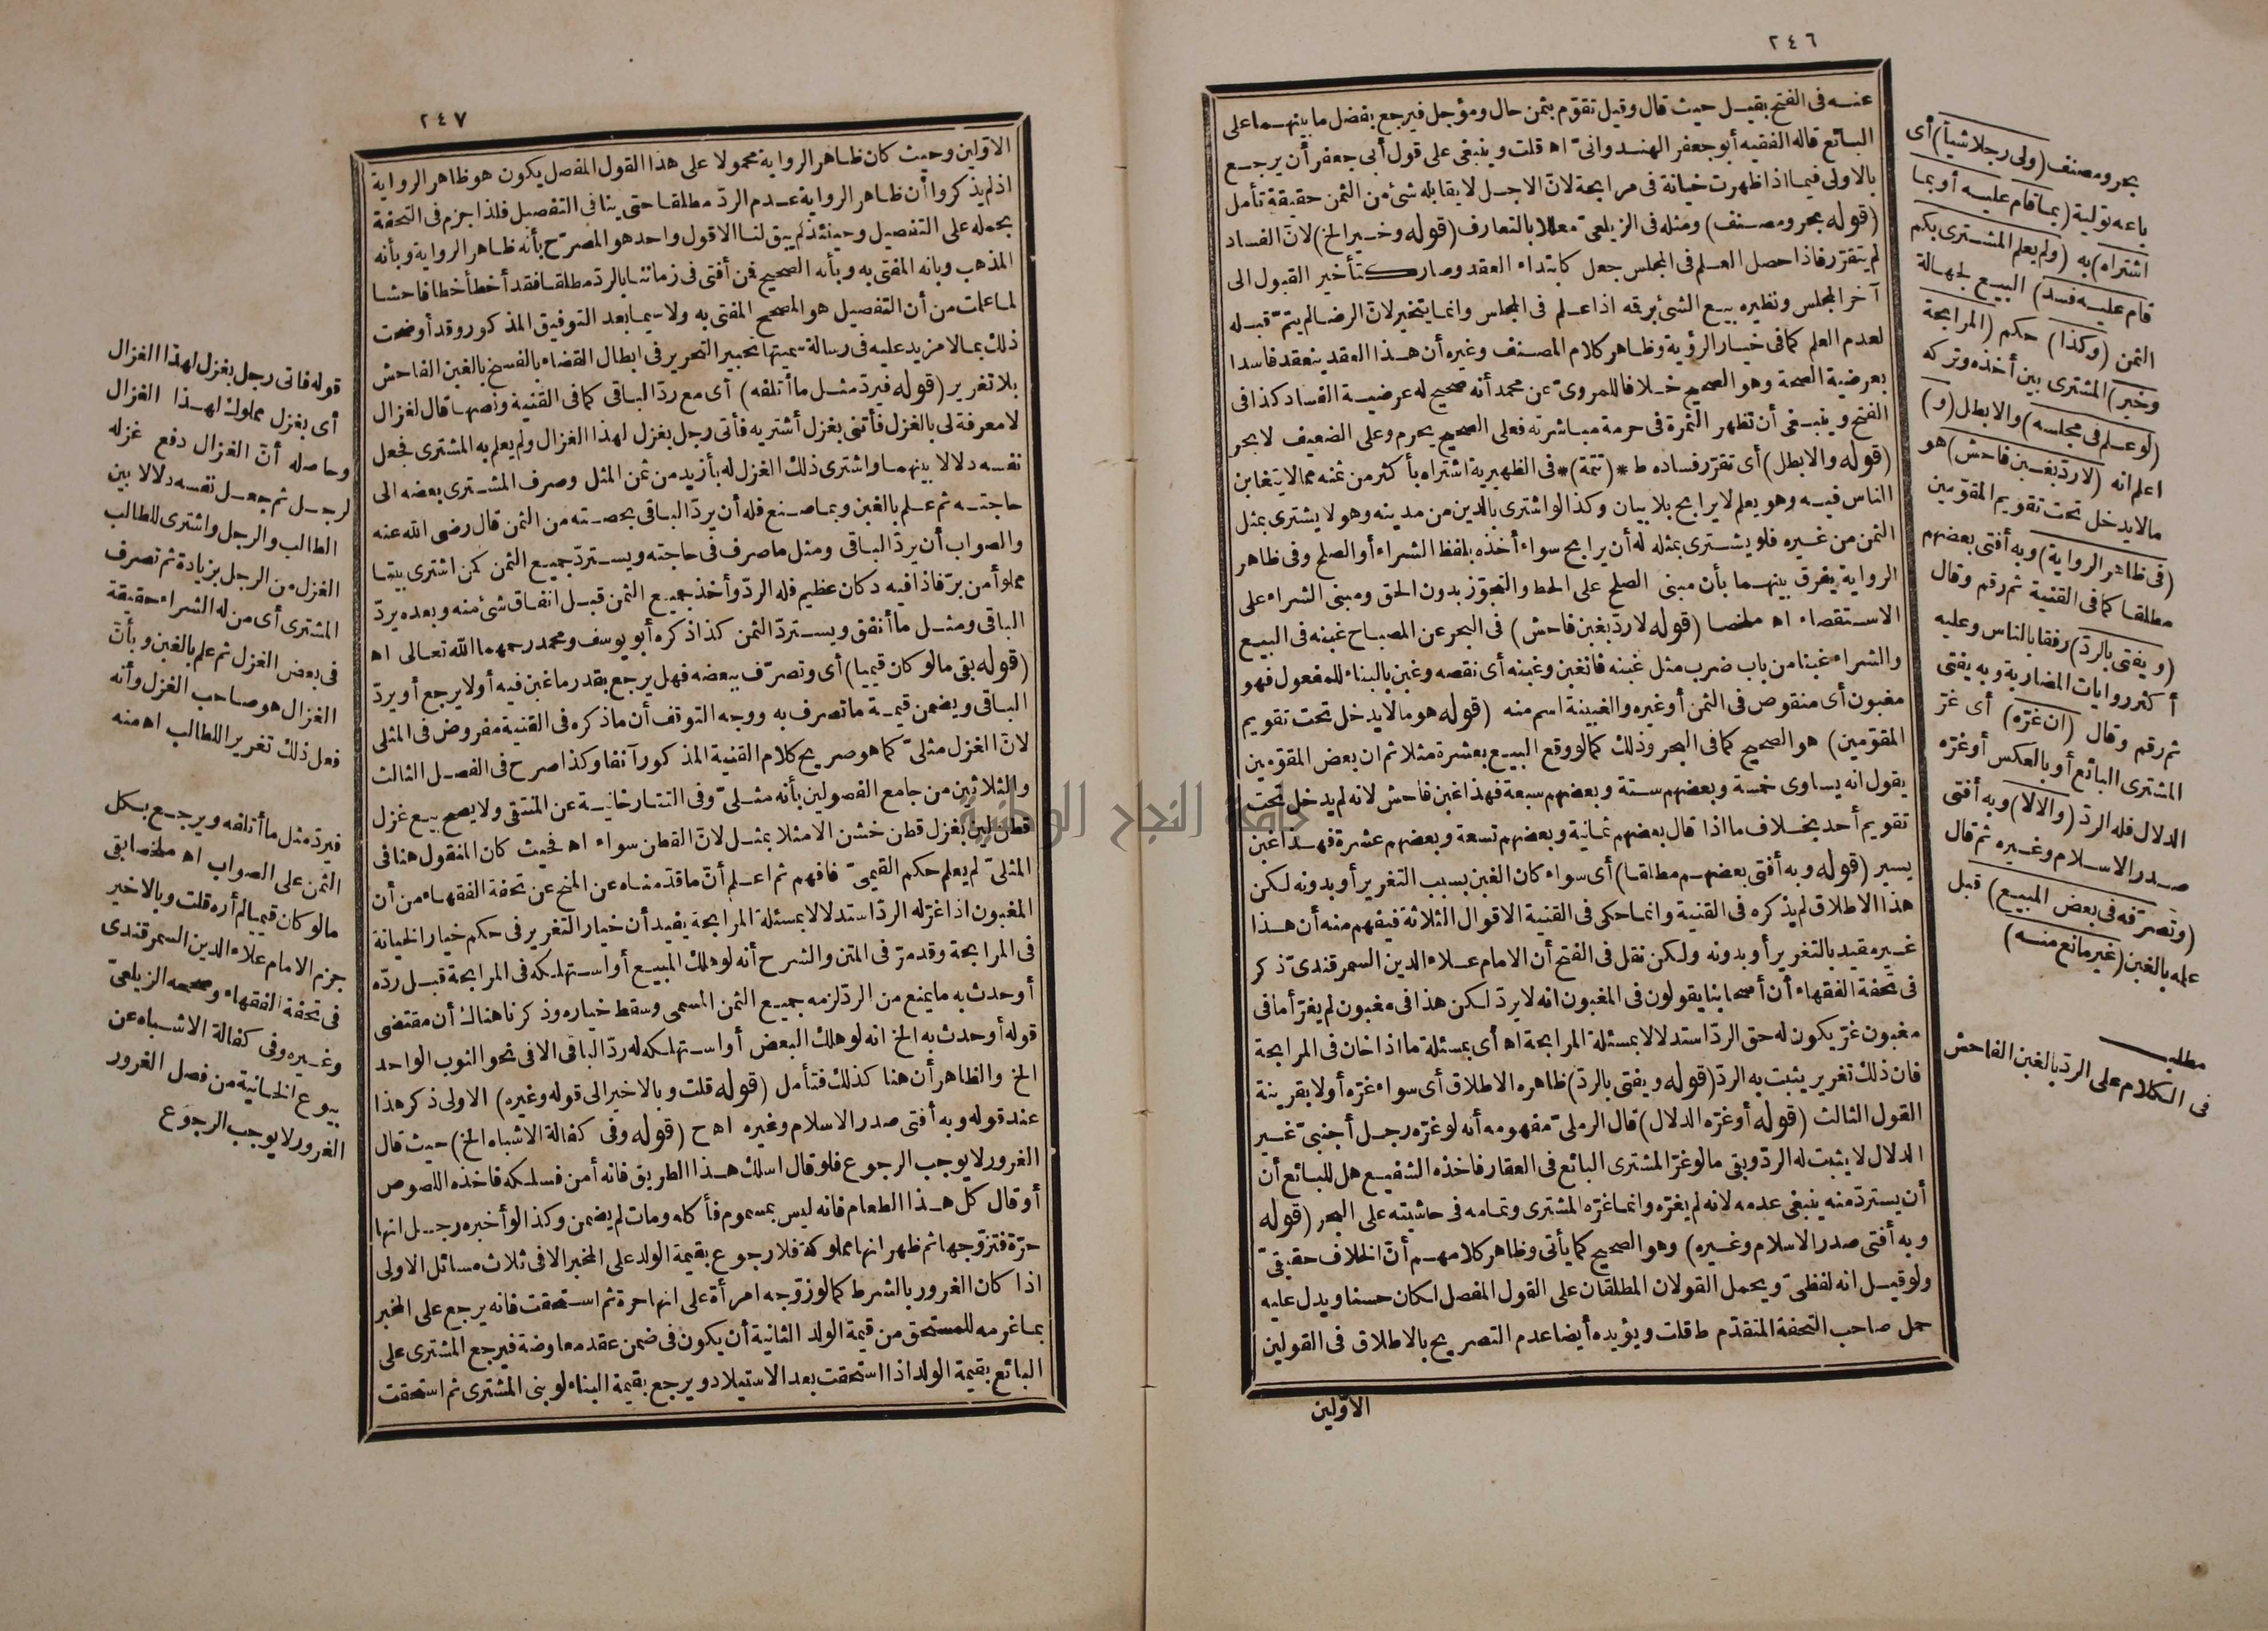 ٢٤٦
عنه فى الفتح بقيل حيث قال وقيل تقوّم بثمن حال ومؤجل فيرجع بفضل ما بينهما على
البائع قاله الفقيه أبو جعفر الهندوانىّ اه قلت وينبغى على قول أبى جعفر أن يرجع
بالاولى فيما اذا ظهرت خيانة فى مرابحة لانّ الاجل لا يقابله شئ من الثمن حقيقة تأمل
(قوله بحر ومصنف) ومثله فى الزيلعىّ معللا بالتعارف (قوله وخير الخ) لانّ الفساد
لم يتقرّر فاذا حصل العلم فى المجلس جعل كابتداء العقد وصار كتأخير القبول الى
آخر المجلس ونظيره بيع الشئ برقه اذا علم فى المجلس وانما يتخير لانّ الرضا لم يتمّ قبله
لعدم العلم كما فى خيار الرؤية وظاهر كلام المصنف وغيره أن هذا العقد ينعقد فاسدا
بعرضية الصحة وهو الصحيح خلافا للمروىّ عن محمد أنه صحيح له عرضية الفساد كذا فى
الفتح وينبغى أن تظهر الثمرة فى حرمة مباشرته فعلى الصحيح يحرم وعلى الضعيف لا بحر
(قوله والابطل) أى تقرّر فساده ط *(تتمة)* فى الظهيرية اشتراه بأكثر من ثمنه مما لا يتغابن
الناس فيه وهو يعلم لا يرابح بلا بيان وكذا لو اشترى بالدين من مدينه وهو لا يشترى بمثل
الثمن من غيره فلو يشترى بمثله له أن يرابح سواء أخذه بلفظ الشراء أو الصلح وفى ظاهر
الرواية يفرق بينهما بأن مبنى الصلح على الحط والتجوّز بدون الحق ومبنى الشراء على
الاستقصاء اه ملخصا (قوله لا ردّ بغبن فاحش) فى البحر عن المصباح غبنه فى البيع
والشراء غبنا من باب ضرب مثل غبنه فانغبن وغبنه أى نقصه وغبن بالبناء للمفعول فهو
مغبون أى منقوص فى الثمن أو غيره والغبينة اسم منه (قوله هو ما لا يدخل تحت تقويم
المقوّمين) هو الصحيح كما فى البحر وذلك كما لو وقع البيع بعشرة مثلا ثم ان بعض المقوّمين
يقول انه يساوى خمسة وبعضهم ستة وبعضهم سبعة فهذا غبن فاحش لانه لم يدخل تحت
تقويم أحد بخلاف ما اذا قال بعضهم ثمانية وبعضهم تسعة وبعضهم عشرة فهذا غبن
يسير (قوله وبه أفتى بعضهم مطلقا) أى سواء كان الغبن بسبب التغرير أو بدونه لكن
هذا الاطلاق لم يذكره فى القنية وانما حكى فى القنية الاقوال الثلاثة فيفهم منه أن هذا
غيره مقيد بالتغرير أو بدونه ولكن نقل فى الفتح أن الامام علاء الدين السمرقندىّ ذكر
فى تحفة الفقهاء أن أصحابنا يقولون فى المغبون انه لا يردّ لكن هذا فى مغبون لم يغرّ أما فى
مغبون غرّ يكون له حق الردّ استدلالا بمسئلة المرابحة اه أى بمسئلة ما اذا خان فى المرابحة
فان ذلك تغرير يثبت به الردّ (قوله ويفتى بالردّ) ظاهره الاطلاق أى سواء غرّه أو لا بقرينة
القول الثالث (قوله أو غرّه الدلال) قال الرملىّ مفهومه أنه لو غرّه رجل أجنبىّ غير
الدلال لا يثبت له الردّ وبقى ما لو غرّ المشترى البائع فى العقار فاخذه الشفيع هل للبائع أن
أن يستردّ منه ينبغى عدمه لانه لم يغرّه وانما غرّه المشترى وتمامه فى حاشيته على البحر (قوله
وبه أفتى صدر الاسلام وغيره) وهو الصحيح كما يأتى وظاهر كلامهم أنّ الخلاف حقيقىّ
ولو قيل انه لفظىّ ويحمل القولان المطلقان على القول المفصل لكان حسنا ويدل عليه
حمل صاحب التحفة المتقدّم ط قلت ويؤيده أيضا عدم التصريح بالاطلاق فى القولين
الاوّلين
بحر ومصنف (ولى رجلا شيأ) أى
باعه تولية (بما قام عليه أو بما
اشتراه) به (ولم يعلم المشترى بكم
قام عليه فسد) البيع لجهالة
الثمن (وكذا) حكم (المرابحة
وخير) المشترى بين أخذه وتركه
(لو علم فى مجلسه) والابطل (و)
اعلم انه (لا ردّ بغبن فاحش) هو
ما لا يدخل تحت تقويم المقوّمين
(فى ظاهر الرواية) وبه أفتى بعضهم
مطلقا كما فى القنية ثم رقم وقال
(ويفتى بالردّ) رفقا بالناس وعليه
أكثر روايات المضاربة وبه يفتى
ثم رقم وقال (ان غرّه) أى غرّ
المشترى البائع أو بالعكس أو غرّه
الدلال فله الردّ (والا لا) وبه أفتى
صدر الاسلام وغيره ثم قال
(وتصرّفه فى بعض المبيع) قبل
علمه بالغبن (غير مانع منه)
مطلب
فى الكلام على الردّ بالغبن الفاحش
٢٤٧
الاوّلين وحيث كان ظاهر الرواية محمولا على هذا القول المفصل يكون هو ظاهر الرواية
اذ لم يذكروا أن ظاهر الرواية عدم الردّ مطلقا حتى ينافى التفصيل فلذا جزم فى التحفة
بحمله على التفصيل وحينئذ لم يبق لنا الا قول واحد هو المصرّح بأنه ظاهر الرواية وبأنه
المذهب وبانه المفتى به وبأنه الصحيح فمن أفتى فى زماننا بالردّ مطلقا فقد أخطأ خطأ فاحشا
لما علمت من أن التفصيل هو المصحح المفتى به ولا سيما بعد التوفيق المذكور وقد أوضحت
ذلك بما لا مزيد عليه فى رسالة سميتها تحبير التحرير فى ابطال القضاء بالفسخ بالغبن الفاحش
بلا تغرير (قوله فيردّ مثل ما أتلفه) أى مع ردّ الباقى كما فى القنية ونصها قال لغزال
لا معرفة لى بالغزل فأتنى بغزل أشتريه فأتى رجل بغزل لهذا الغزال ولم يعلم به المشترى فجعل
نفسه دلالا بينهما واشترى ذلك الغزل له بأزيد من ثمن المثل وصرف المشترى بعضه الى
حاجته ثم علم بالغبن وبما صنع فله أن يردّ الباقى بحصته من الثمن قال رضى الله عنه
والصواب أن يردّ الباقى ومثل ما صرف فى حاجته ويستردّ جميع الثمن كمن اشترى بيتا
مملوأ من برّ فاذا فيه دكان عظيم فله الردّ وأخذ جميع الثمن قبل انفاق شئ منه وبعده يردّ
الباقى ومثل ما أنفق ويستردّ الثمن كذا ذكره أبو يوسف ومحمد رحمهما الله تعالى اه
(قوله بقى ما لو كان قيميا) أى وتصرّف ببعضه فهل يرجع بقدر ما غبن فيه أو لا يرجع أو يردّ
الباقى ويضمن قيمة ما تصرف به ووجه التوقف أن ما ذكره فى القنية مفروض فى المثلى
لانّ الغزل مثلىّ كما هو صريح كلام القنية المذكور آنفا وكذا صرح فى الفصل الثالث
والثلاثين من جامع الفصولين بأنه مثلىّ وفى التتارخانية عن المنتقى ولا يصح بيع غزل
قطن لين بغزل قطن خشن الا مثلا بمثل لانّ القطن سواء اه فحيث كان المنقول هنا فى
المثلىّ لم يعلم حكم القيمىّ فافهم ثم اعلم أنّ ما قدّمناه عن المنح عن تحفة الفقهاء من أن
المغبون اذا غرّ له الردّ استدلالا بمسئلة المرابحة يفيد أن خيار التغرير فى حكم خيار الخيانة
فى المرابحة وقد مرّ فى المتن والشرح أنه لو هلك المبيع أو استهلكه فى المرابحة قبل ردّه
أو حدث به ما يمنع من الردّ لزمه جميع الثمن المسمى وسقط خياره وذكرنا هنالك أن مقتضى
قوله أو حدث به الخ انه لو هلك البعض أو استهلكه له ردّ الباقى الا فى نحو الثوب الواحد
الخ والظاهر أن هنا كذلك فتأمل (قوله قلت وبالاخير الى قوله وغيره) الاولى ذكر هذا
عند قوله وبه أفتى صدر الاسلام وغيره اه ح (قوله وفى كفالة الاشباه الخ) حيث قال
الغرور لا يوجب الرجوع فلو قال اسلك هذا الطريق فانه أمن فسلكه فاخذه اللصوص
أو قال كل هذا الطعام فانه ليس بمسموم فأكله ومات لم يضمن وكذا لو أخبره رجل انها
حرّة فتزوّجها ثم ظهر انها مملوكة فلا رجوع بقيمة الولد على المخبر الا فى ثلاث مسائل الاولى
اذا كان الغرور بالشرط كما لو زوّجه امرأة على انها حرة ثم استحقت فانه يرجع على المخبر
بما غرمه للمستحق من قيمة الولد الثانية أن يكون فى ضمن عقد معاوضة فيرجع المشترى على
البائع بقيمة الولد اذا استحقت بعد الاستيلاد ويرجع بقيمة البناء لو بنى المشترى ثم استحقت
قوله فاتى رجل بغزل لهذا الغزال
أى بغزل مملوك لهذا الغزال
وحاصله أنّ الغزال دفع غزله
لرجل ثم جعل نفسه دلالا بين
الطالب والرجل واشترى للطالب
الغزل من الرجل بزيادة ثم تصرف
المشترى أى من له الشراء حقيقة
فى بعض الغزل ثم علم بالغبن وبأنّ
الغزال هو صاحب الغزل وأنه
فعل ذلك تغريرا للطالب اه منه
فيردّ مثل ما أتلفه ويرجع بكل
الثمن على الصواب اه ملخصا بقى
ما لو كان قيميا لم أره قلت وبالاخير
جزم الامام علاء الدين السمرقندى
فى تحفة الفقهاء وصححه الزيلعىّ
وغيره وفى كفالة الاشباه عن
بيوع الخانية من فصل الغرور
الغرور لا يوجب الرجوع
جامعة النجاح الوطنية